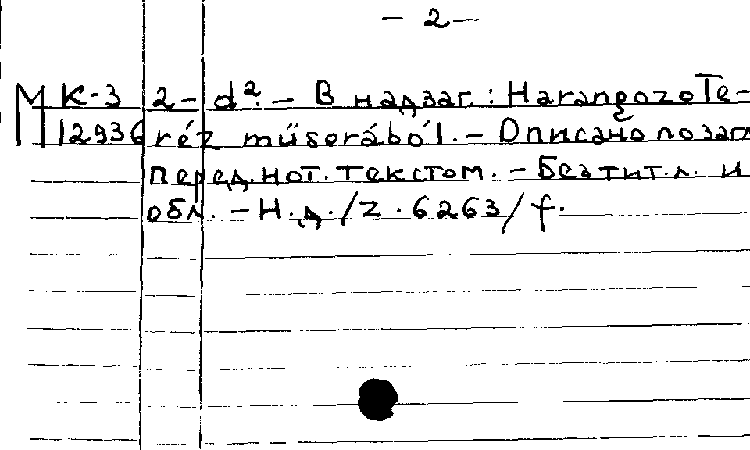 - 2 -
М К-3 2 - d². - В надзаг.: Harangozo Te-
12936 réz müsorából. - Описано по заг.
перед. нот. текстом. - Без тит. л. и
обл. - Н.д. /Z. 6263/f.